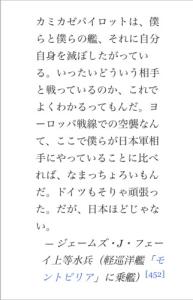 カミカゼパイロットは、僕
らと僕らの艦、それに自分
自身を滅ぼしたがってい
る。いったいどういう相手
と戦っているのか、これで
よくわかるってもんだ。ヨ
ーロッパ戦線での空襲なん
て、ここで僕らが日本軍相
手にやっていることに比べ
れば、なまっちょろいもん
だ。ドイツもそりゃ頑張っ
た。だが、日本ほどじゃな
い。
— ジェームズ・J・フェー
イ上等水兵（軽巡洋艦「モ
ントピリア」に乗艦）[452]